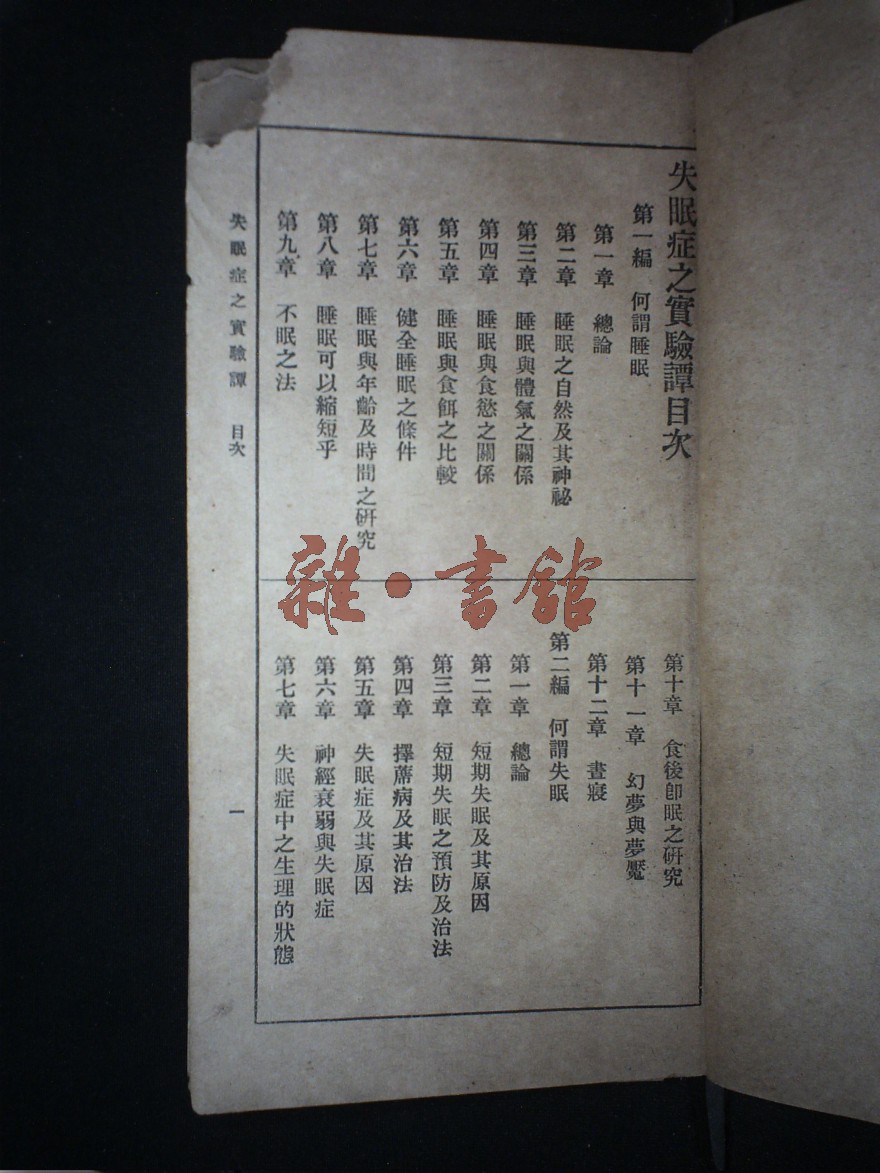 失眠症之實驗譚目次
第一編 何謂睡眠
第一章 總論
第二章 睡眠之自然及其神祕
第三章 睡眠與體氣之關係
第四章 睡眠與食慾之關係
第五章 睡眠與食餌之比較
第六章 健全睡眠之條件
第七章 睡眠與年齡及時間之研究
第八章 睡眠可以縮短乎
第九章 不眠之法
第十章 食後卽眠之研究
第十一章 幻夢與夢魘
第十二章 晝寢
第二編 何謂失眠
第一章 總論
第二章 短期失眠及其原因
第三章 短期失眠之預防及治法
第四章 擇蓆病及其治法
第五章 失眠症及其原因
第六章 神經衰弱與失眠症
第七章 失眠症中之生理的狀態
失眠症之實驗譚 目次
一
雜·書館